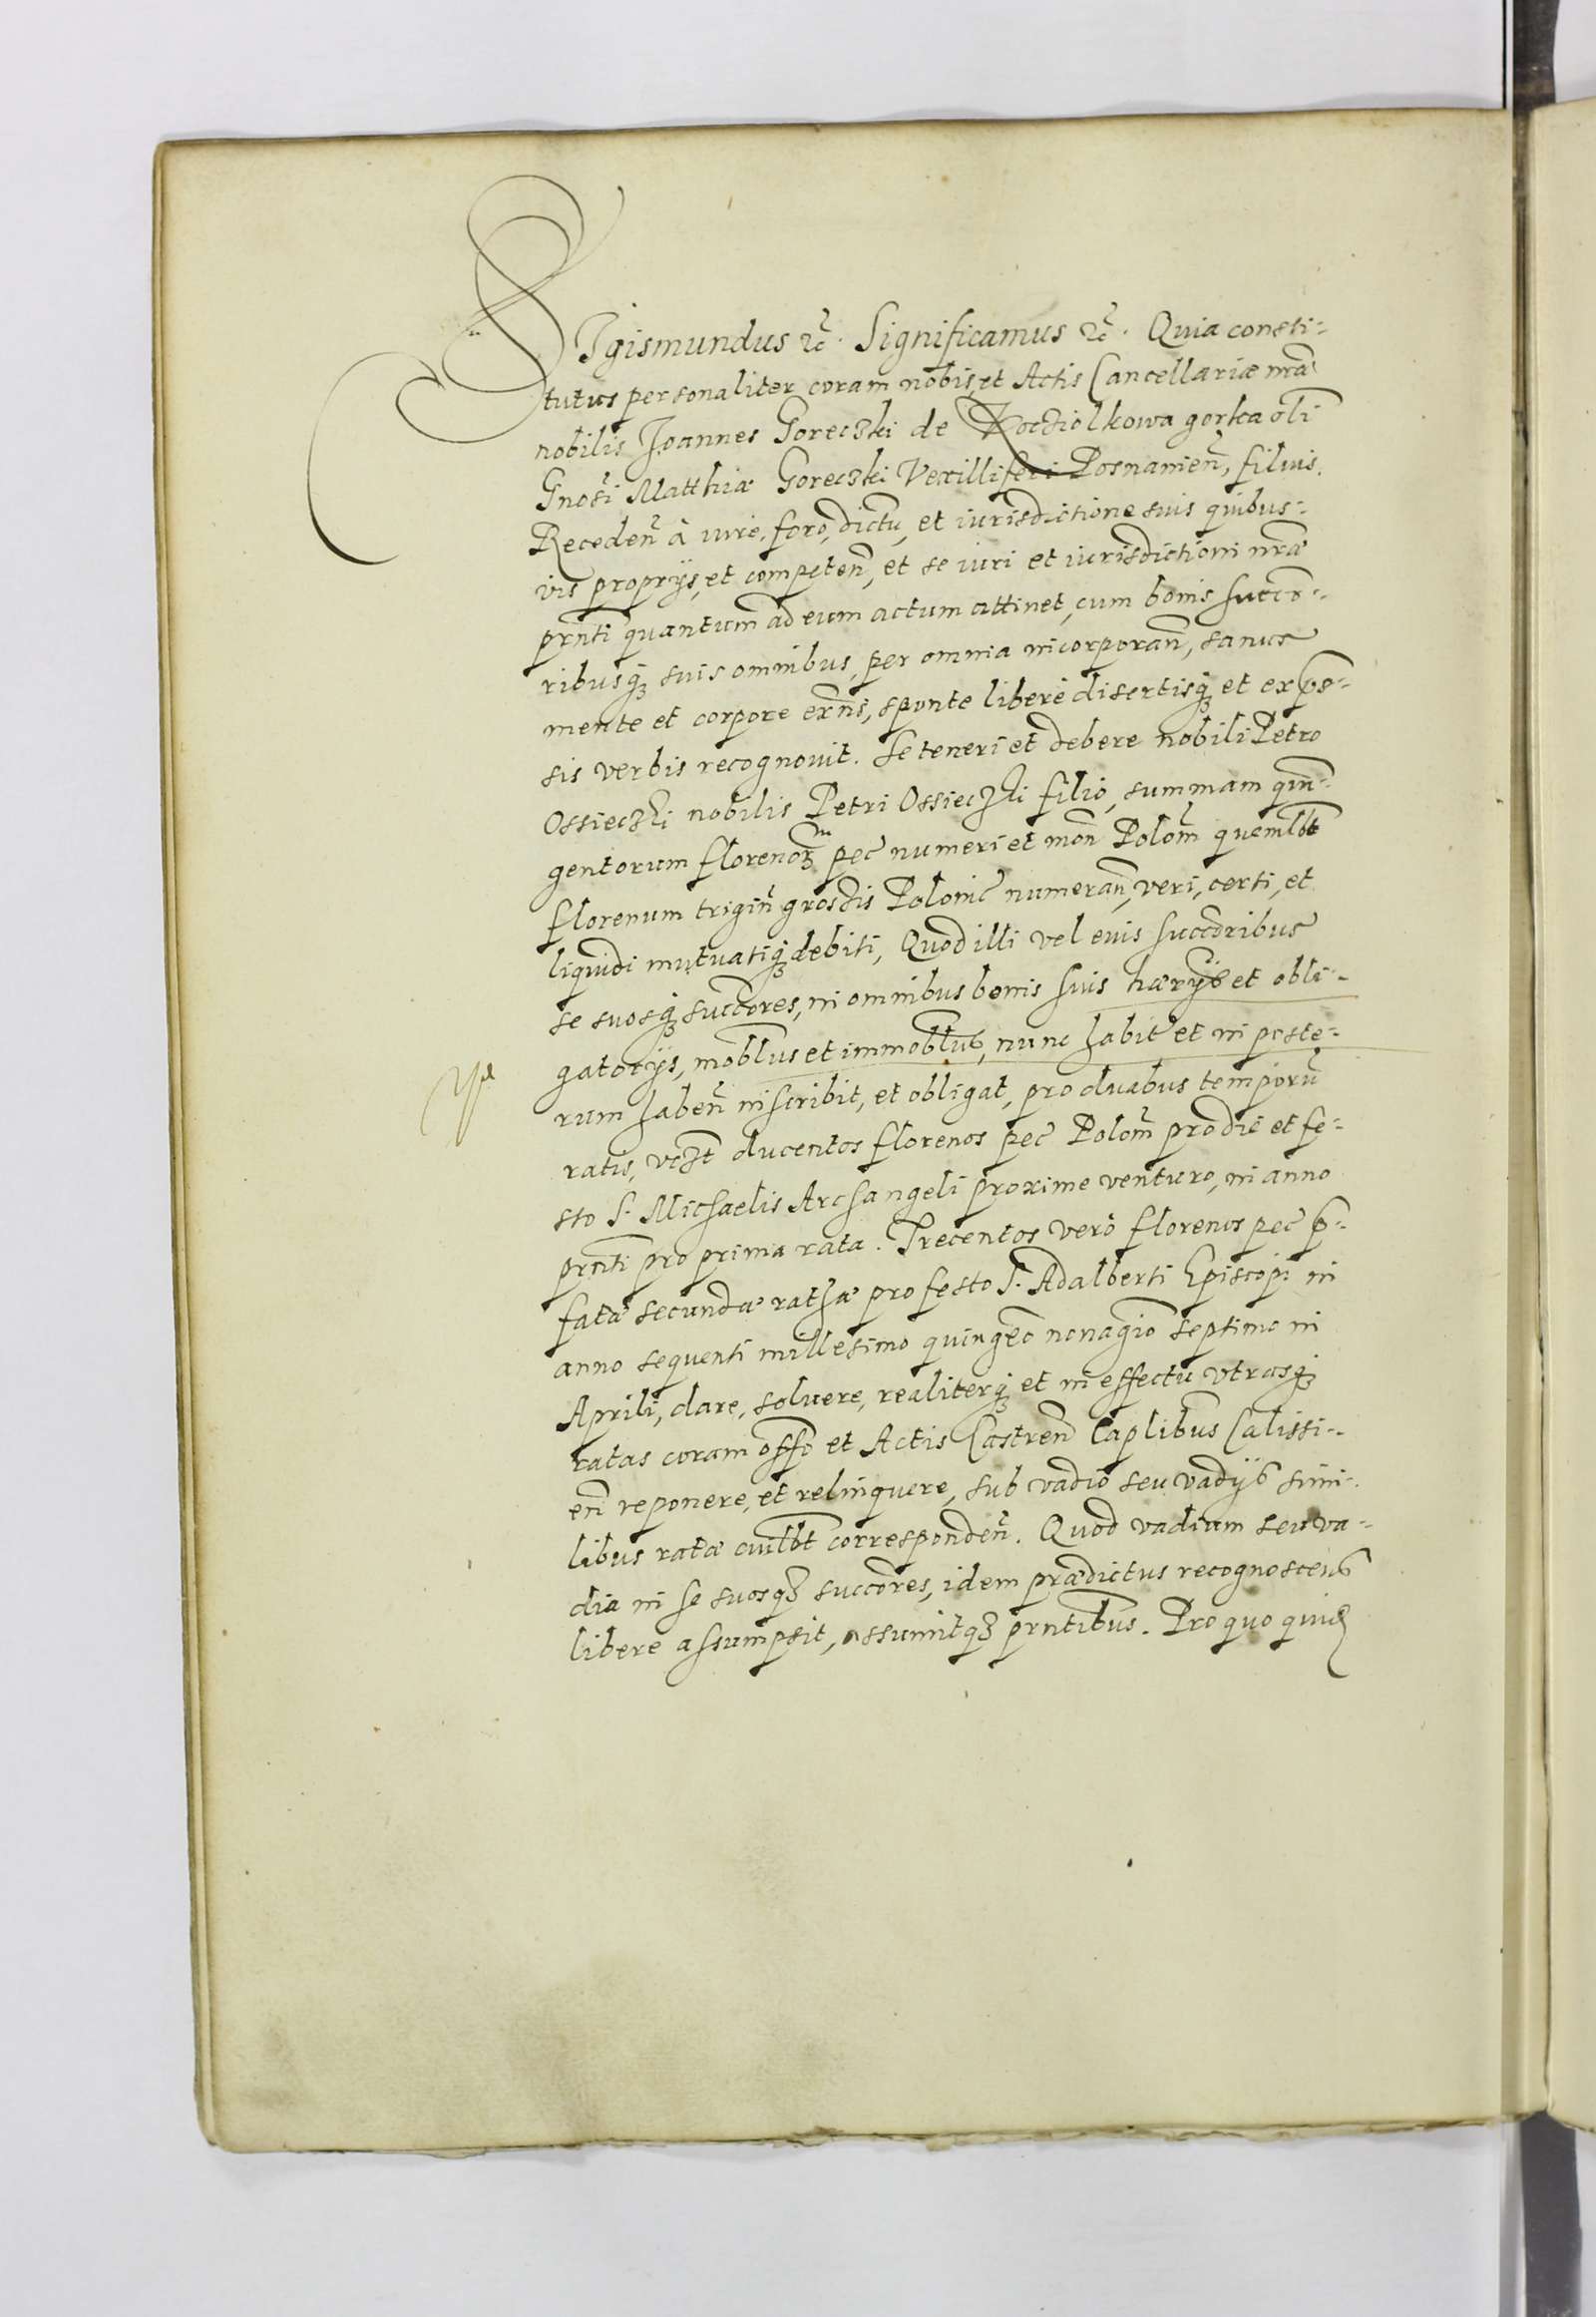 SIgismundus &c̃. Significamus &c̃. Quia consti-
tutus personaliter coram nobis, et Actis Cancellariæ nr̃æ
nobilis Joannes Goreczki de Kocziolkowa gorka oli͠
Gnosi͠ Matthiæ Goreczki Vexilliferi Posnanien͠, filius.
Receden͠ à iure, foro, dictu͠, et iurisdictione suis quibus-
vis proprijs, et competen͠, et se iuri et iurisdictioni nr̃æ
prn͠ti quantum ad eum actum attinet, cum bonis succo͠-
ribusq₃ suis omnibus, per omnia incorporan͠, sanus
mente et corpore exn͠s, sponte liberè disertisq₃ et expr͠s-
sis verbis recognovit. Se teneri et debere nobili Petro
Ossieczki nobilis Petri Ossieczki filio, summam quin͠-
gentorum florenor͠ pec͠ numeri et mon͠ Polon͠ quemlib͠t
florenum trigin͠ grossis Polonic͠ numeran͠, veri, certi, et
liquidi mutuatiq₃ debiti, Quod illi vel euis succo͠ribus
se suosq₃ succo͠res, in omnibus bonis suis hærijs et obli-
gatorijs, mobl͠bus et immobl͠bus, nunc habit͠ et in poste-
rum haben͠ inscribit, et obligat, pro duabus temporu͠
ratis, vczt͠ ducentos florenos pec͠ Polon͠ pro die et fe-
sto S. Michaelis Archangeli proxime venturo, in anno
prn͠ti pro prima rata. Trecentos verò florenos pec͠ p͠-
fatæ secundæ rathæ pro festo S. Adalberti Episcopi in
anno sequenti millesimo quingen͠o nonagi͠o septimo in
Aprili, dare, solvere, realiterq₃ et in effectu utrasq₃
ratas coram off͠o et Actis Castren͠ Capl͠ibus Calissi-
en͠ reponere, et relinquere, sub vadio seu vadijs simi-
libus ratæ cuilib͠t corresponden͠. Quod vadium seu va-
dia in se suosq₃ succo͠res, idem prædictus recognoscens
libere assumpsit, assumitq₃ prn͠tibus. Pro quo quid͠